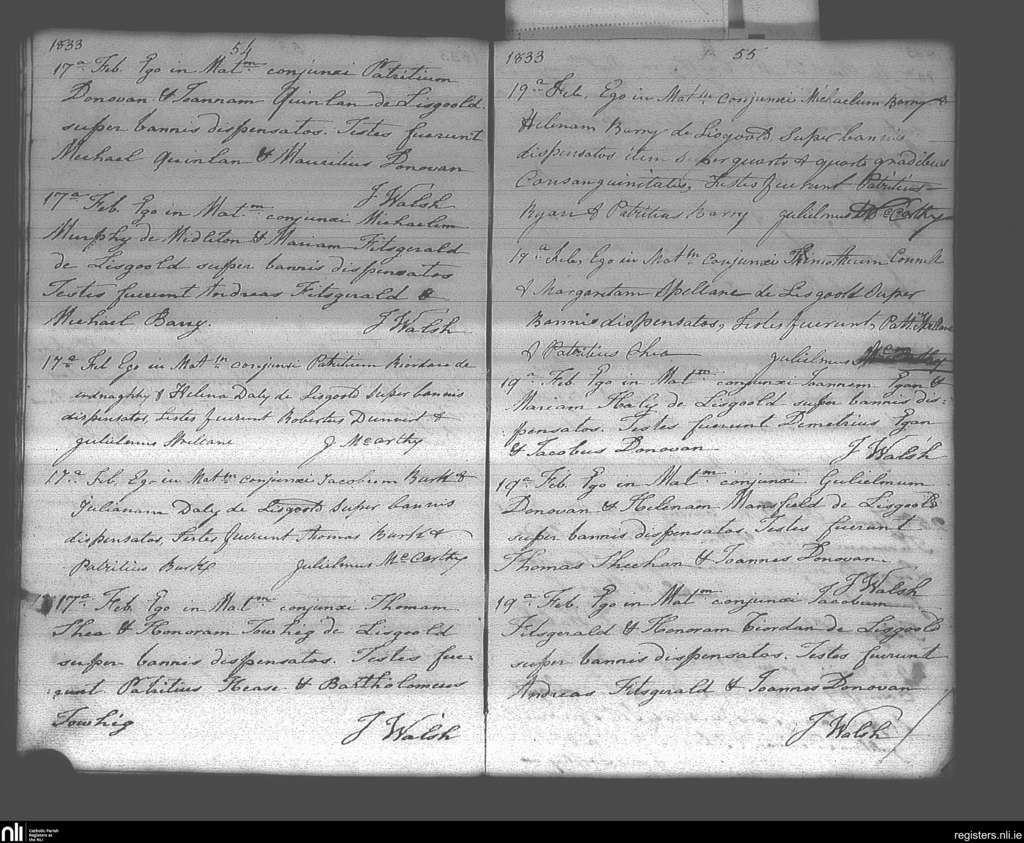 1833
54
17a Feb. Ego in Matm conjunxi Patritium
Donovan & Joannam Quinlan de Lisgoold
super bannis dispensatos. Testes fuerunt
Michael Quinlan & Mauritius Donovan
J Walsh
17a Feb. Ego in Matm conjunxi Michaelem
Murphy de Midleton & Mariam Fitsgerald
de Lisgoold super bannis dispensatos
Testes fuerunt Andreas Fitsgerald &
Michael Barry. J Walsh
17a Feb Ego in Matm conjunxi Patritium Riordan de
& Helena Daly de Lisgoold Super bannis
dispensatos, Testes fuerunt Robertus &
Gulielmus J McCarthy
17a Feb. Ego in Matm conjunxi Jacobum Burk &
Julianam Daly de Lisgoold Super bannis
dispensatos, Testes fuerunt Thomas Burk &
Patritius Burk Gulielmus McCarthy
17a Feb. Ego in Matm conjunxi Thomam
Shea & Honoram Towhig de Lisgoold
super bannis dispensatos. Testes fue-
:runt Patritius Hease & Bartholomeus
Towhig J Walsh
1833
55
19a Feb. Ego in Matm Conjunxi Michaelum Barry &
Helenam Barry de Lisgoold Super bannis
dispensatos item super quarto & quarto gradibus
Consanguinitatis, Testes fuerunt Patritius
Ryan & Patritius Barry Gulielmus McCarthy
19a Feb, Ego in Matm Conjunxi Connell
& Margaritam Spellane de Lisgoold Super
Bannis dispensatos, Testes fuerunt,
& Patritius Gulielmus McCarthy
19a Feb Ego in Matm conjunxi Joannem Egan &
Mariam Haly de Lisgoold super bannis dis-
:pensatos. Testes fuerunt Demetrius Egan
& Jacobus Donovan J Walsh
19a Feb. Ego in Matm conjunxi Gulielmum
Donovan & Helenam Mansfield de Lisgoold
super bannis dispensatos. Testes fuerunt
Thomas Sheehan & Joannes Donovan
J Walsh
19a Feb. Ego in Matm conjunxi Jacobum
Fitsgerald & Honoram Riordan de Lisgoold
super bannis dispensatos. Testes fuerunt
Andreas Fitsgerald & Joannes Donovan
J Walsh
nli
Catholic Parish
Registers at
the NLI
registers.nli.ie